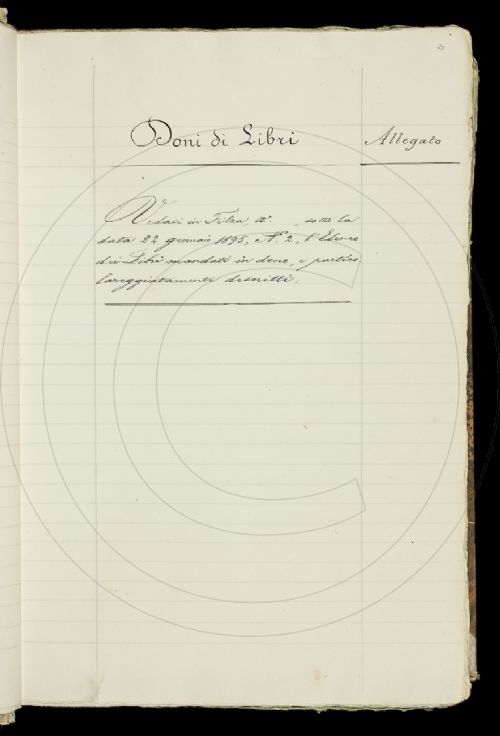 21
Doni di Libri
Allegato
Vedasi in Filza, N°. sotto la
data 22 gennaio 1895, N° 2, l'Elenco
dei Libri mandati in dono, e partico
lareggiatamente descritti.